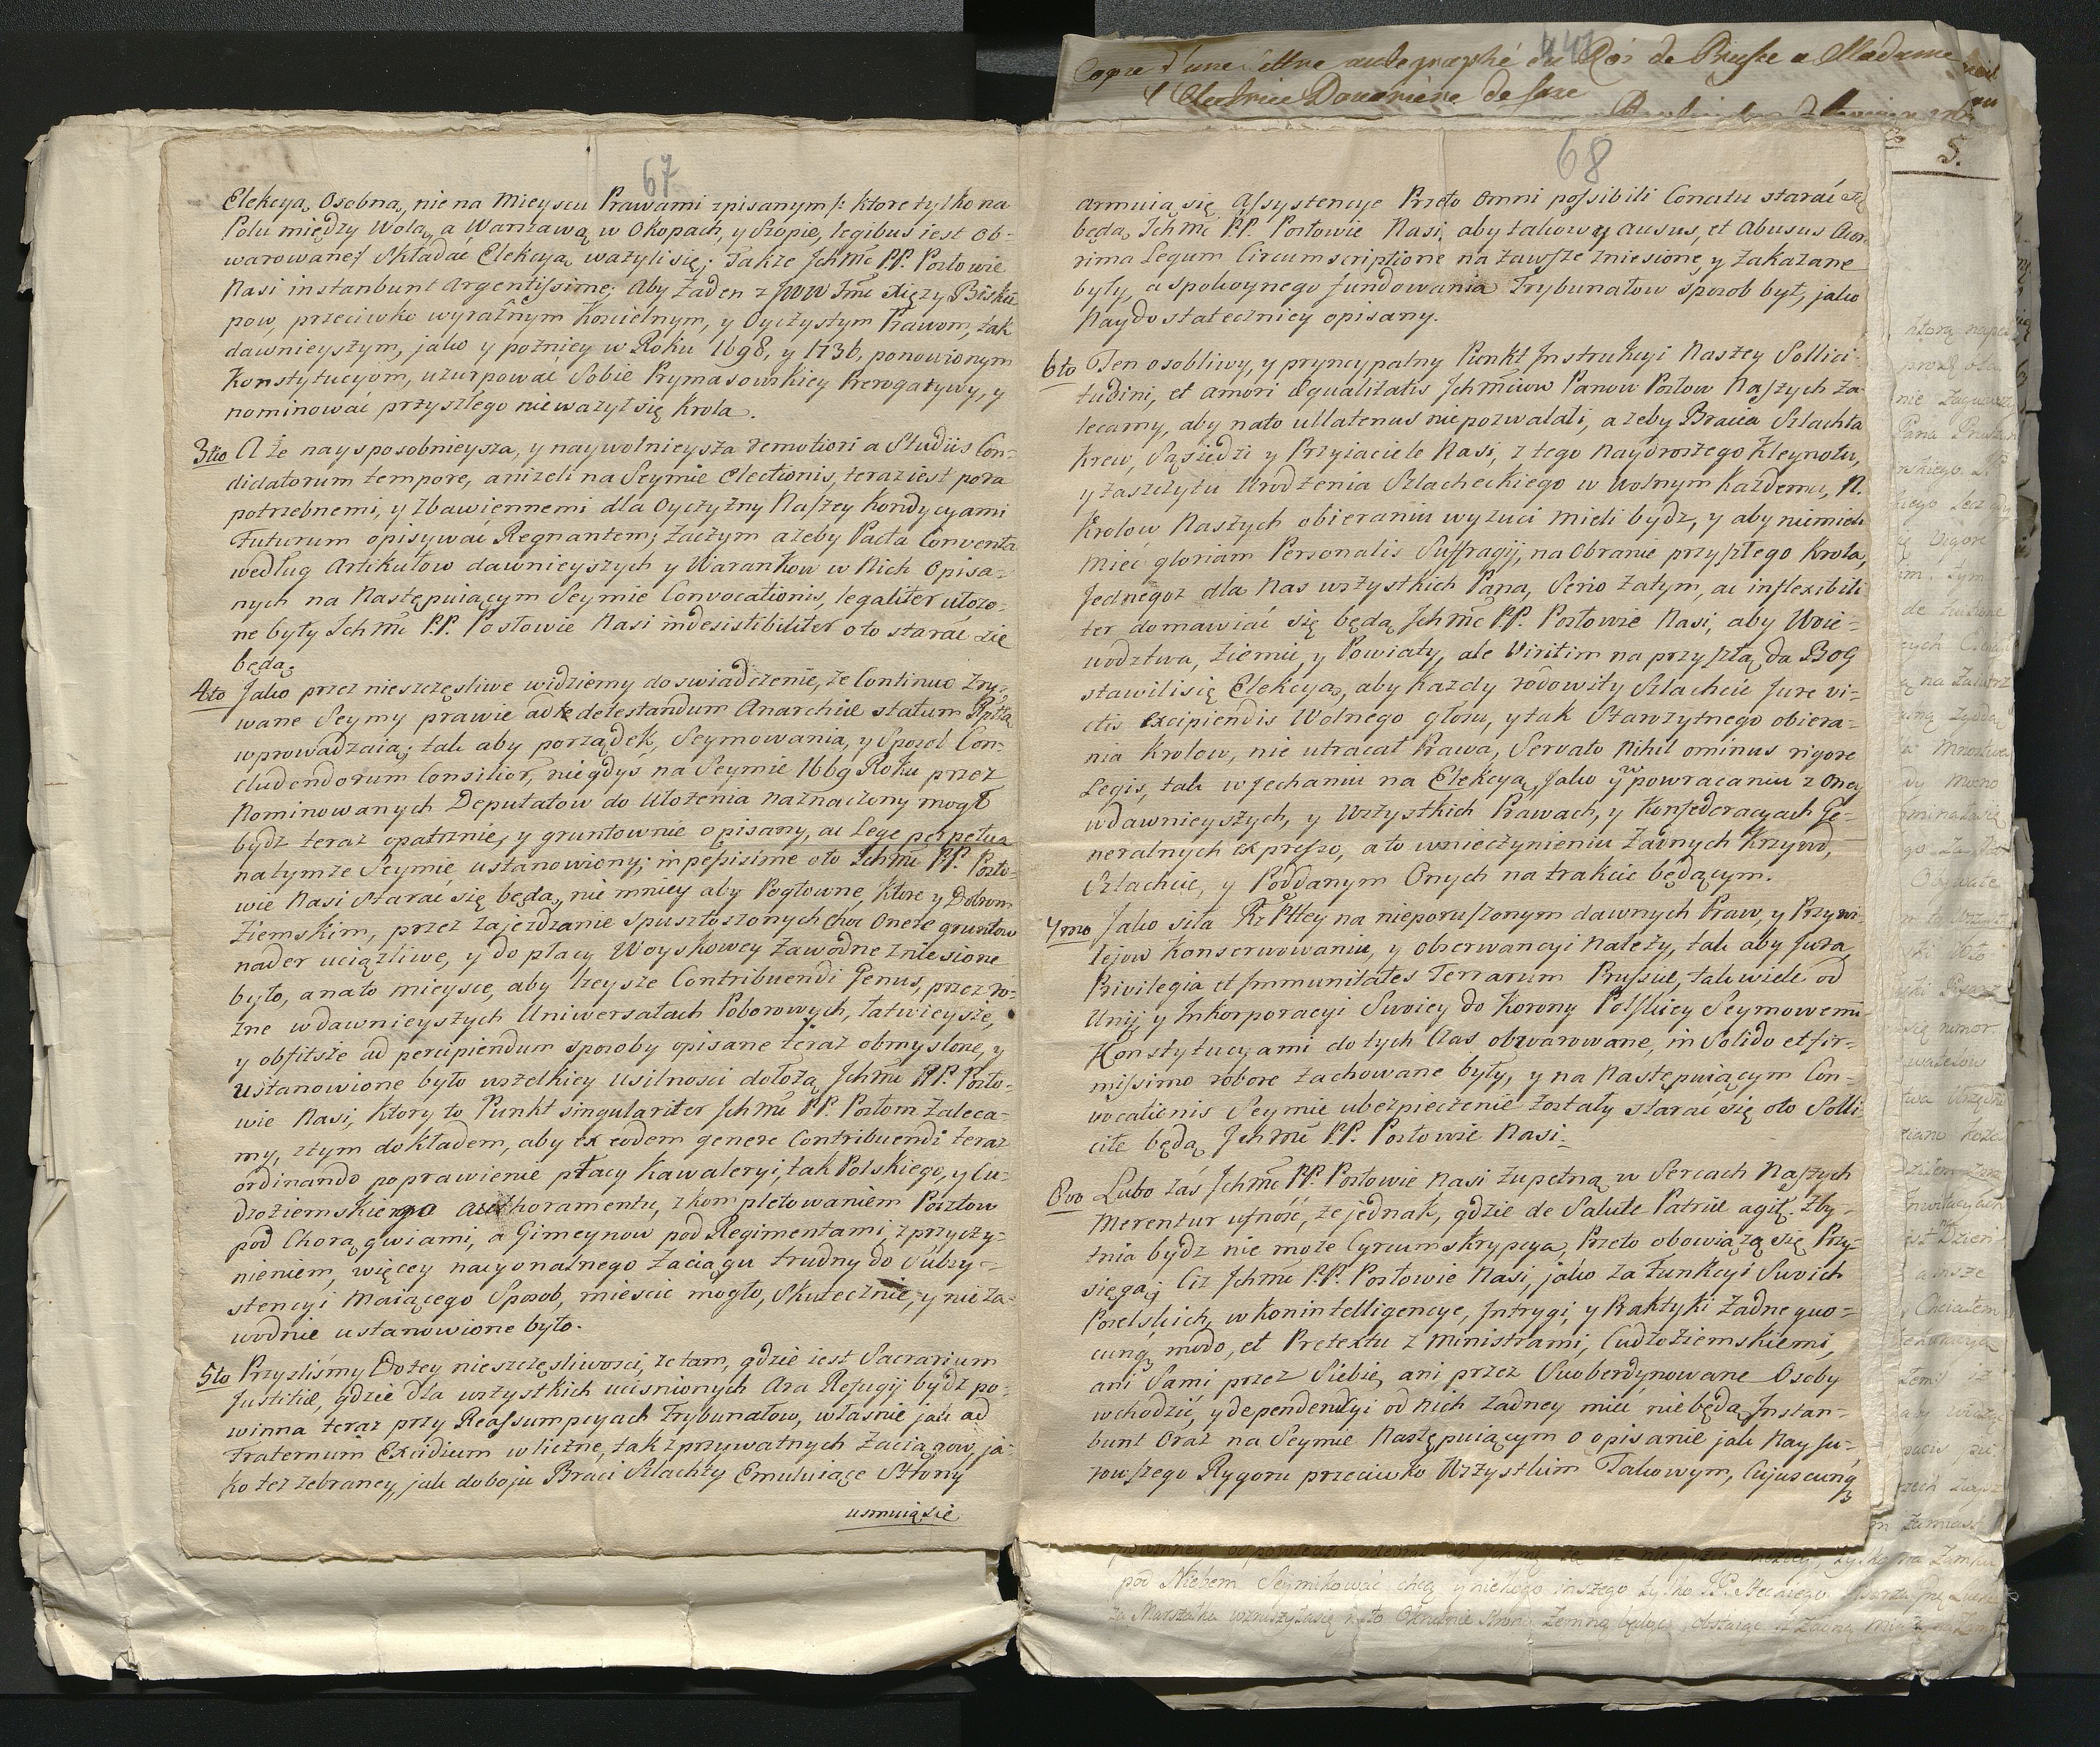 67
Elekcyą Osobną, nie na Mieyscu Prawami zpisanym /: ktore tylko na
Polu między Wolą, a Warszawą w Okopach, y Szopie, legibus iest ob-
warowane:/ Składać Elekcyą ważyli się; Także Jchmć PP. Posłowie
Nasi instanbunt argentissime; Aby żaden z JWW Jmć Xięży Bisku
pow, przeciwko wyraźnym Kościelnym, y Oyczystym Prawom, tak
dawnieyszym, jako y pozniey w Roku 1698, y 1736, ponowionym
Konstytucyom, uzurpować Sobie Prymasowskiey Prerogatywy, y
nominować przyszłego nieważył się Krola.
3tio A że naysposobnieysza, y naywolnieysza remotiori a Studiis Can-
didatorum tempore, aniżeli na Seymie Electionis, teraz iest pora
potrzebnemi, y zbawiennemi dla Oyczyzny Naszey Kondycyami
Futurum opisywać Regnantem; zaczym ażeby Pacta Conventa
według Artikułow dawnieyszych y Warunkow w Nich Opisa-
nych na Następuiącym Seymie Convocationis, legaliter ułożo-
ne były Jchmć P.P. Posłowie Nasi indesistibiliter oto starać się
będą.
4to Jako przez nieszczęśliwe widziemy doswiadczenie, że Continuo zry-
wane Seymy prawie ad detestandum Anarchiæ statum Rpltą
wprowadzaią; tak aby porządek, Seymowania, y Sposob Con-
cludendorum Consilior, niegdyś na Seymie 1669 Roku przez
Nominowanych Deputatow do Ułożenia naznaczony mogł
bydz teraz opatrznie, y gruntownie opisany, ac Lege perpetua
na tymże Seymie ustanowiony; impensissime oto Jchmć PP. Posło-
wie Nasi starać się będą, nie mniey aby Pogłowne, Ktore y Dobrom
Ziemskim, przez zajezdzanie spustoszonych circa Onere gruntow
nader uciążliwe, y do płacy Woyskowey zawodne zniesione
było, a na to mieysce, aby lzeysze Contribuendi Genus, przez ro-
zne w dawnieyszych Uniwersałach Poborowych, łatwieysze,
y obfitsze ad percipiendum sposoby opisane teraz obmyslone, y
ustanowione było wszelkiey usilnosci dołożą Jchmć PP. Posło-
wie Nasi, Ktory to Punkt singulariter Jchmć PP. Posłom zaleca-
my, z tym dokładem, aby ex eodem genere Contribuendi teraz
ordinando poprawienie płacy Kawaleryi, tak Polskiego, y Cu-
dzoziemskiego authoramentu, z kompletowaniem Pocztow
pod Chorągwiami, a Gimeynow pod Regimentami, z przyczy-
nieniem, więcey nacyonalnego zaciągu trudny do Subsy-
stencyi Maiącego Sposob, miescić mogło, Skutecznie, y nie za-
wodnie ustanowione było.
5to Przyszliśmy do tey nieszczęsliwości, że tam, gdzie iest Sacrarium
Justitiæ, gdzie dla wszystkich ucisnionych Ara Refugij bydz po-
winna teraz przy Reassumpcyach Trybunałow, własnie jak ad
Fraternum Exidium w liczne, tak z prywatnych zaciągow, ja-
ko też zebraney, jak do boju Braci Szlachty Emuluiące Strony
usmuią sie
68
armuią się Assystencye Przeto Omni possibili Conatu starać się
będą Jchmć P.P. Posłowie Nasi, aby takowy ausus, et Abusus
rima Legum Circumscriptione na zawsze zniesione, y zakazane
były, a spokoynego fundowania Trybunałow sposob był, jako
Naydostateczniey opisany.
6to Ten osobliwy, y pryncypalny Punkt Instrukcyi Naszey Sollici-
tudini, et amori Æqualitatis Jchmciow Panow Posłow Naszych za-
lecamy, aby na to ullatenus nie pozwalali, a żeby Bracia Szlachta
Krew, Sąsiedzi y Przyiaciele Nasi, z tego Naydroższego Kleynotu,
y zaszczytu Urodzenia Szlacheckiego w Wolnym Kazdemu, N.
Krolow Naszych obieraniu wyzuci mieli bydz, y aby niemieli
Mieć gloriam Personalis Suffragij, na Obranie przyszłego Krola,
Jednegoż dla Nas wszystkich Pana, Serio zatym, ac inflexibili
ter domawiać się będą Jchmć PP. Posłowie Nasi, aby Woie-
wodztwa, Ziemie, y Powiaty, ale Viritim na przyszłą da BOG
stawili się Elekcyą, aby Kazdy rodowity Szlachcic Jure vi-
ctis excipiendis Wolnego głosu, y tak Starożytnego obiera-
nia Krolow, nie utracał Prawa, Servato Nihil ominus rigore
Legis, tak w jechaniu na Elekcyą, Jako y w powracaniu z Oney
w dawnieyszych, y Wszystkich Prawach, y Konfederacyach Ge-
neralnych expresso, a to wnieczynieniu żadnych Krzywd,
Szlachcie, y Poddanym Onych na trakcie będącym.
7mo Jako siła Rz Pltey na nieporuszonym dawnych Praw, y Przywi-
lejow Konserwowaniu, y obserwancyi należy, tak aby Jura,
Privilegia et Immunitates Terrarum Prussiæ, tak wiele od
Unij, y Inkorporacyi Swoiey do Korony Polskiey Seymowemi
Konstytucyami do tych Czas obwarowane, in Solido et fir-
missimo robore zachowane były, y na Następuiącym Con-
vocationis Seymie ubezpieczenie zostały starać się oto Solli
cite będą Jchmć P.P. Posłowie Nasi.
8vo Lubo zaś Jchmć PP. Posłowie Nasi zupełną w Sercach Naszych
Merentur ufność, że jednak, gdzie de Salute Patriæ agit zby-
tnia bydz nie może Cyrcumskrypcya, Przeto obowiążą się Przy-
sięgą; Ciż Jchmć P.P. Posłowie Nasi, jako za Funkcyi Swoich
Poselskich, w Konintelligencye, Intrygi, y Praktyki żadne quo-
cunq modo, et Pretextu z Ministrami, Cudzoziemskiemi,
ani Sami przez Siebie, ani przez Swoberdynowane Osoby
wchodzić, y dependendyi od nich zadney mieć nie będą, Instan-
bunt Oraz na Seymie Następuiącym o opisanie jak Naysu-
rowszego Rygoru przeciwko Wszystkim Takowym, Cujuscunq
Copie d'une lettre autographé du Roi de Prusse a Madame
l'Electrice Douariere de Saxe
5.
pod Niebem Seymikować chcą y niekogo inszego tylko
za Marszałka